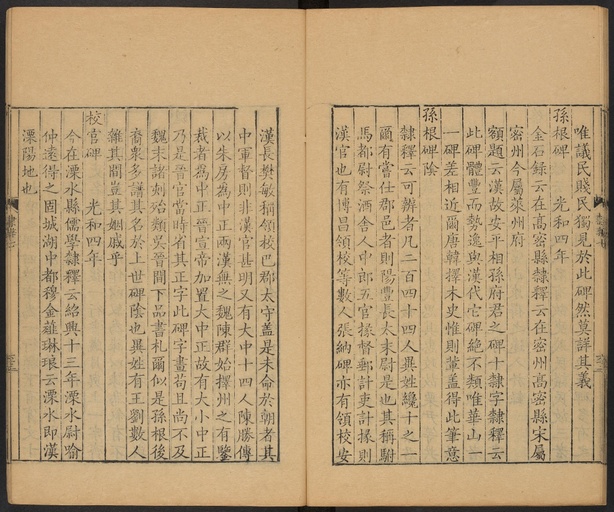 唯議民賤民獨見於此碑然莫詳其義
孫根碑　光和四年
金石錄云在高密縣隸釋云在密州高密縣宋屬
密州今屬萊州府
額題云漢故安平相孫府君之碑十隸字隸釋云
此碑體豐而勢逸與漢代它碑絕不類唯華山一
一碑差相近爾唐韓擇木史惟則輩蓋得此筆意
孫根碑陰
隸釋云可辨者凡二百四十四人異姓纔十之一
爾有嘗仕郡邑者則陽豐長太末尉是也其稱駙
馬都尉祭酒舍人中郎五官掾督郵計吏計掾則
漢官也有博昌領校等數人張納碑亦有領校安
漢長樊敏稱領校巴郡太守蓋是未命於朝者其
中軍督則非漢官甚明又有大中十四人陳勝傳
以朱房為中正兩漢無之魏陳群始擇州之有鑒
裁者為中正晉宣帝加置大中正故有大小中正
乃是晉官當時省其正字此碑字畫苟且尚不及
魏末諸刻殆類吳晉間下品書札爾似是孫根後
裔衆多講其名於上世碑陰也異姓有王劉數人
雜其間豈其姻戚乎
校官碑　光和四年
今在溧水縣儒學隸釋云紹興十三年溧水尉喻
仲遠得之固城湖中都穆金薤琳琅云溧水即漢
溧陽地也